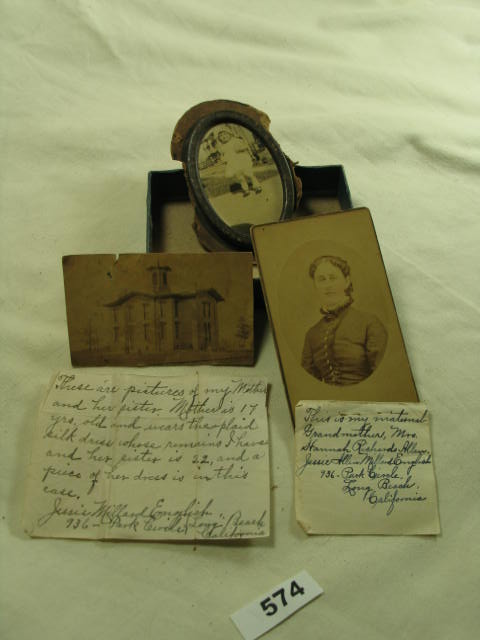 These are pictures of my Mother
and her sister. Mother is 17
yrs. old and wears the plaid
silk dress whose remains I have
and her sister is 22, and a
piece of her dress is in this
case.
Jessie Millard English.
936 - Park Circle, Long Beach
California
This is my maternal
Grandmother, Mrs.
Hannah Richards Allen,
Jessie Allen Millard English
936 - Park Circle,
Long Beach,
California
574